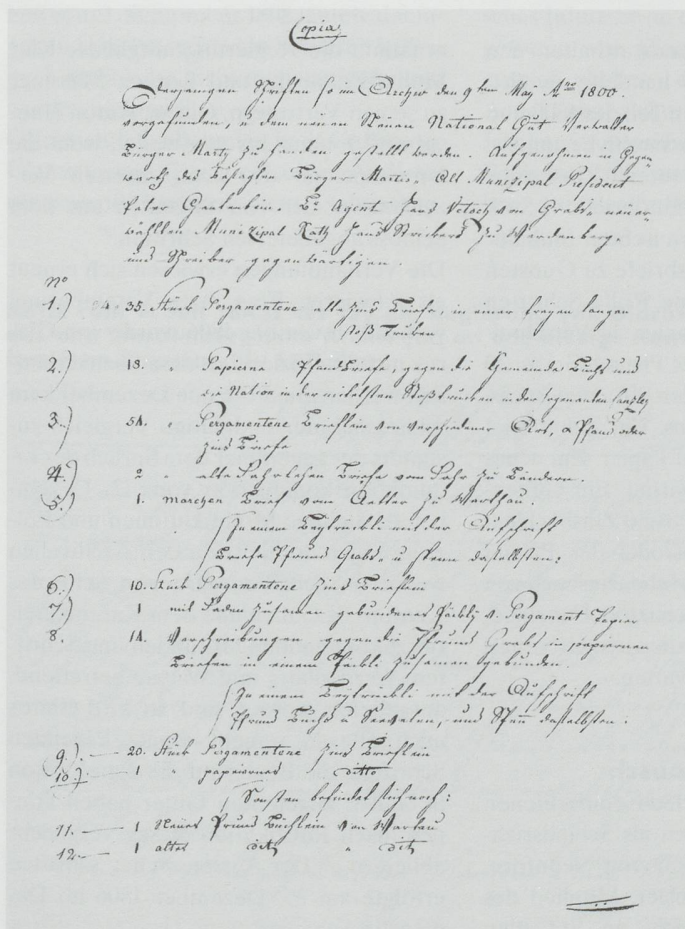 Copia
Derjenigen Schriften so im Archiv den 9ten May Ao 1800.
vorgefunden, u dem neuen Neuen National Gut Verwalter
Bürger Marty zu handen gestellt worden. Aufgenohmen in Gegen-
warth des besagten Bürger Martis. Alt Munizipal President
Peter Gantenbein. Br Agent Hans Vetsch von Grabs. neüer-
wählten Munizipal Rath Hans Strickers zu Werdenberg.
und Schreiber gegenwärtigen
No
1.) 35. Stück Pergamentene alte Zins Briefe, in einer langen
Trüken
2.) 18. " Papierne Pfandbriefe, gegen die Gemeinde Buchs und
die Nation in der mitelsten in der sogenanten Canzley
3.) 54. Pergamentene Brieflein von verschiedener Art, a Pfand oder
Zins Briefe
4.) 2 " alte Fahrlehen Briefe vom Fahr zu Bendern.
5.) 1. Marchen Brief vom Aetter zu Warthau.
In einem mit der Aufschrift
Briefe Pfrund Grabs u Spenn daselbsten:
6.) 10. Stück Pergamentene Zins Brieflein
7.) 1 mit Faden zusamen gebundenes v. Pergament Papier
8. 14. Verschreibungen gegen die Pfrund Grabs in papiernen
Briefen in einem zusamen gebunden.
In einem mit der Aufschrift
Pfrund Buchs u Sevelen, und Spenn daselbsten.
9.) — 20. Stück Pergamentene Zins Brieflein
10.) — 1 " papiernes " ditto
Sonsten befindet sich noch:
11. — 1 Neües Pfrund Büchlein von Wartau
12. — 1 altes dito " dito